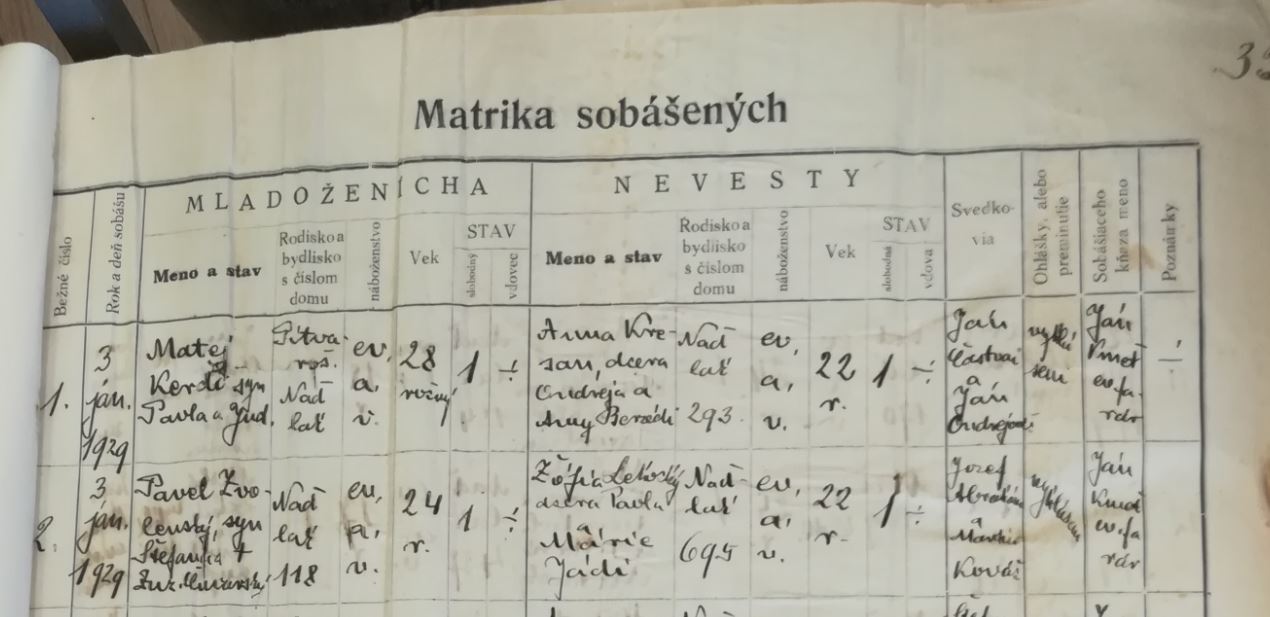 Matrika sobášených
Bežné číslo
Rok a deň sobášu
MLADOŽENÍCHA
Meno a stav
Rodisko a
bydlisko
s číslom
domu
náboženstvo
Vek
STAV
slobodný
vdovec
NEVESTY
Meno a stav
Rodisko a
bydlisko
s číslom
domu
náboženstvo
Vek
STAV
slobodná
vdova
Svedko-
via
Ohlášky, alebo
preminutie
Sobášiaceho
kňaza meno
Poznámky
1.
3
ján.
1929
Matej
syn
Pavla a Jud.
Pitva-
roš.
Nad
lak
ev.
a.
v.
28
ročný
1
÷
Anna Kre-
san, dcera
Ondreja a
Anny
Nad
lak
293.
ev.
a.
v.
22
r.
1
÷
Ján
a
Ján
Ján
Kmeť
ev. fa-
rár
÷
2.
3
ján.
1929
Pavel Zvo-
lenský, syn
Štefana
Zuz.
Nad
lak
118
ev.
a.
v.
24
r.
1
÷
Žófia
dcera Pavla
Márie
Jádi
Nad-
lak
695
ev.
a.
v.
22
r.
1
÷
Jozef
a
Kováč
Ján
Kmeť
ev. fa
rár